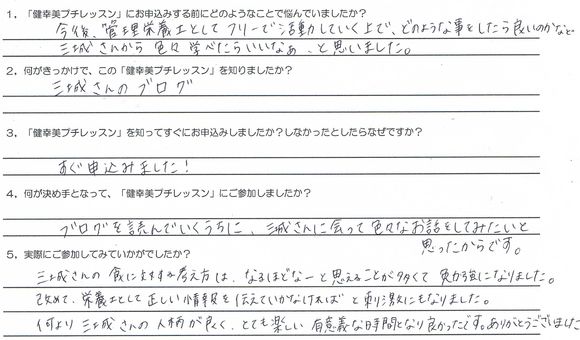 1．「健幸美プチレッスン」にお申込みする前にどのようなことで悩んでいましたか？
今後、管理栄養士として フリーで活動していく上で、どのような事をしたら良いのかなど
三城さんから 色々 学べたらいいなぁ、と思いました。
2．何がきっかけで、この「健幸美プチレッスン」を知りましたか？
三城さんの ブログ
3．「健幸美プチレッスン」を知ってすぐにお申込みしましたか？しなかったとしたらなぜですか？
すぐ申込みました！
4．何が決め手となって、「健幸美プチレッスン」にご参加しましたか？
ブログを読んでいくうちに、三城さんに会って色々なお話をしてみたいと
思ったからです。
5．実際にご参加してみていかがでしたか？
三城さんの 食に対する考え方は、なるほどなーと思えることが多くて 勉強になりました。
改めて、栄養士として正しい情報を伝えていかなければ と刺激にもなりました。
何より 三城さんの人柄が良く、とても楽しい 有意義な時間となり良かったです。ありがとうございました